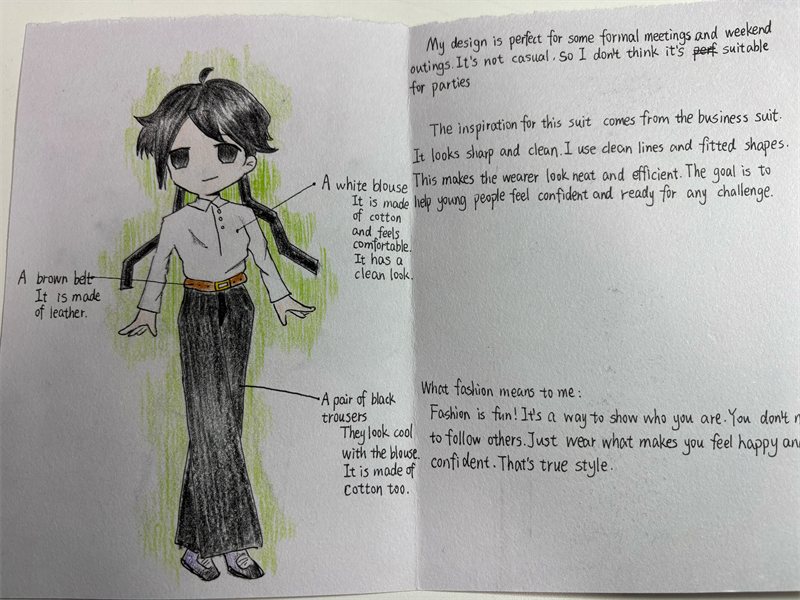 A white blouse
It is made
of cotton
and feels
comfortable.
It has a
clean look.
A brown belt
It is made
of leather.
A pair of black
trousers
They look cool
with the blouse.
It is made of
cotton too.
My design is perfect for some formal meetings and weekend
outings. It's not casual, so I don't think it's perf suitable
for parties
The inspiration for this suit comes from the business suit.
It looks sharp and clean. I use clean lines and fitted shapes.
This makes the wearer look neat and efficient. The goal is to
help young people feel confident and ready for any challenge.
What fashion means to me:
Fashion is fun! It's a way to show who you are. You don't
to follow others. Just wear what makes you feel happy
confident. That's true style.